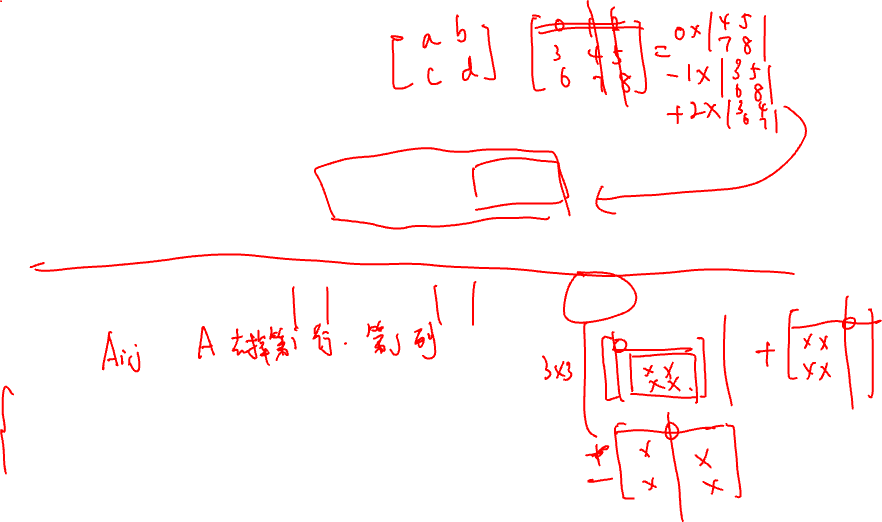 [a b
c d] [0 1 2
3 4 5
6 7 8] = 0x|4 5
7 8|
-1x|3 5
6 8|
+2x|3 4
6 7|
Aij A 去掉第i行. 第j列
3x3 [0
x x
x x] + [0
x x
x x]
+
- [0
x x
x x]